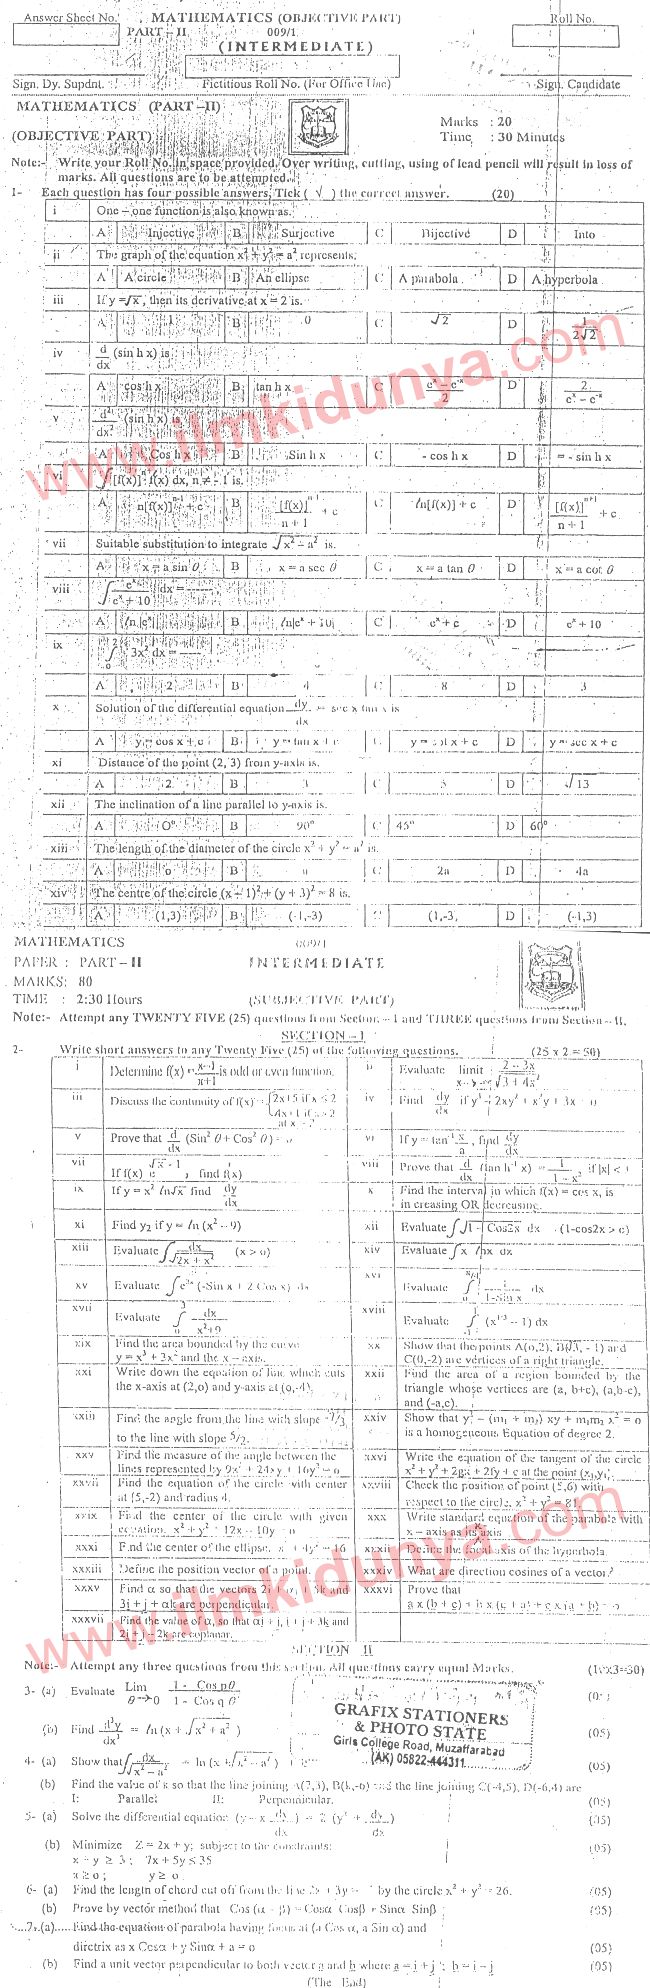 Answer Sheet No.
MATHEMATICS (OBJECTIVE PART)
Roll No.
PART – II 009/1
(INTERMEDIATE)
Sign. Dy. Supdnt. Fictitious Roll No. (For Office Use) Sign. Candidate
MATHEMATICS (PART –II)
(OBJECTIVE PART)
Marks : 20
Time : 30 Minutes
Note:- Write your Roll No. in space provided. Over writing, cutting, using of lead pencil will result in loss of
marks. All questions are to be attempted.
1- Each question has four possible answers, Tick ( √ ) the correct answer. (20)
i One – one function is also known as.
A Injective B Surjective C Bijective D Into
ii The graph of the equation x² + y² = a² represents.
A A circle B An ellipse C A parabola D A hyperbola
iii If y = √x, then its derivative at x = 2 is.
A 1 B 0 C √2 D 1/2√2
iv d/dx (sin h x) is
A cos h x B tan h x C eˣ – e⁻ˣ/2 D 2/eˣ – e⁻ˣ
v d²/dx² (sin h x) is
A Cos h x B Sin h x C - cos h x D = - sin h x
vi ∫[f(x)]ⁿ f(x) dx, n ≠ - 1 is.
A n[f(x)]ⁿ⁻¹ + c B [f(x)]ⁿ⁺¹/n + 1 + c C ln[f(x)] + c D [f(x)]ⁿ⁺¹/n + 1 + c
vii Suitable substitution to integrate √x² – a² is.
A x = a sin θ B x = a sec θ C x = a tan θ D x = a cot θ
viii ∫ eˣ/eˣ + 10 dx =
A ln|eˣ| B ln|eˣ + 10| C eˣ + c D eˣ + 10
ix ∫₀² 3x² dx =
A 2 B 4 C 8 D 3
x Solution of the differential equation dy/dx = sec x tan x is
A y = cos x + c B y = tan x + c C y = cot x + c D y = sec x + c
xi Distance of the point (2, 3) from y-axis is.
A 2 B 3 C 5 D √13
xii The inclination of a line parallel to y-axis is.
A 0° B 90° C 45° D 60°
xiii The length of the diameter of the circle x² + y² = a² is.
A o B a C 2a D 4a
xiv The centre of the circle (x – 1)² + (y + 3)² = 8 is.
A (1,3) B (-1,-3) C (1,-3, D (-1,3)
MATHEMATICS 009/1
PAPER : PART – II INTERMEDIATE
MARKS: 80
TIME : 2:30 Hours (SUBJECTIVE PART)
Note:- Attempt any TWENTY FIVE (25) questions from Section – I and THREE questions from Section – II.
SECTION – I
2- Write short answers to any Twenty Five (25) of the following questions. (25 x 2 = 50)
i Determine f(x) = x–1/x+1 is odd or even function.
ii Evaluate limit 2 – 3x/√3 + 4x²
iii Discuss the continuity of f(x) = 2x+5 if x ≤ 2
4x+1 if x > 2
at x = 2
iv Find dy/dx if
v Prove that d/dx (Sin² θ + Cos² θ) = o
vi If y = tan⁻¹ x/a, find dy/dx
vii If f(x) , find f(x)
viii Prove that d/dx (tan h⁻¹ x) = 1/1 – x², if |x| < 1
ix If y = x² ln√x find dy/dx
x Find the interval in which f(x) = cos x, is
in creasing OR decreasing.
xi Find y₂ if y = ln (x² – 9)
xii Evaluate ∫√1 - Cos2x dx (1-cos2x > o)
xiii Evaluate ∫ dx/√2x + x² (x > o)
xiv Evaluate ∫x lnx dx
xv Evaluate (-Sin x + 2 Cos x) dx
xvi Evaluate 1/1-Sin x dx
xvii Evaluate ∫₀³ dx/x²+9
xviii Evaluate (x¹ᐟ³ – 1) dx
xix Find the area bounded by the curve
y = x³ + 3x² and the x – axis.
xx Show that the points A(o,2), B(√3, - 1) and
C(0,-2) are vertices of a right triangle.
xxi Write down the equation of line which cuts
the x-axis at (2,o) and y-axis at (o,-4).
xxii Find the area of a region bounded by the
triangle whose vertices are (a, b+c), (a,b-c),
and (-a,c).
xxiii Find the angle from the line with slope -7/3
to the line with slope 5/2.
xxiv Show that y² – (m₁ + m₂) xy + m₁m₂ x² = o
is a homogeneous Equation of degree 2.
xxv Find the measure of the angle between the
lines represented by 9x² + 24xy + 16y² = o
xxvi Write the equation of the tangent of the circle
x² + y² + 2gx + 2fy + c at the point (x₁,y₁)
xxvii Find the equation of the circle with center
at (5,-2) and radius 4.
xxviii Check the position of point (5,6) with
respect to the circle, x² + y² = 81.
xxix Find the center of the circle with given
equation. x² + y² 12x – 10y = o
xxx Write standard equation of the parabola with
x – axis as its axis
xxxi Find the center of the ellipse. x² + 4y² = 16
xxxii Define the focal axis of the hyperbola.
xxxiii Define the position vector of a point.
xxxiv What are direction cosines of a vector?
xxxv Find α so that the vectors 2i + αj + 5k and
3i + j + αk are perpendicular.
xxxvi Prove that
a x (b + c) + b x (c + a) + c x (a + b) = o
xxxvii Find the value of α, so that αi + j, i + j + 3k and
2i + j – 2k are coplanar.
SECTION II
Note:- Attempt any three questions from this section. All questions carry equal Marks. (10x3=30)
3- (a) Evaluate Lim θ→0 1 - Cos pθ/1 - Cos q θ (05)
(b) Find d³y/dx³ = ln (x + √x² + a²) (05)
GRAFIX STATIONERS
& PHOTO STATE
Girls College Road, Muzaffarabad
(AK) 05822-444311
4- (a) Show that ∫ dx/√x² – a² = ln (x + √x² – a²) (05)
(b) Find the value of k so that the line joining A(7,3), B(k,-6) and the line joining C(-4,5), D(-6,4) are
I: Parallel II: Perpendicular. (05)
5- (a) Solve the differential equation (y – x dy/dx) = 2 (y² + dy/dx) (05)
(b) Minimize Z = 2x + y; subject to the constraints: (05)
x + y ≥ 3 ; 7x + 5y ≤ 35
x ≥ o ; y ≥ o
6- (a) Find the length of chord cut off from the line 2x + 3y = by the circle x² + y² = 26. (05)
(b) Prove by vector method that Cos (α – β) = Cosα Cosβ + Sinα Sinβ (05)
7- (a) Find the equation of parabola having focus at (a Cos α, a Sin α) and
dirctrix as x Cosα + y Sinα + a = o (05)
(b) Find a unit vector perpendicular to both vector a and b where a = i + j ; b = i – j (05)
(The End)
www.ilmkidunya.com
www.ilmkidunya.com